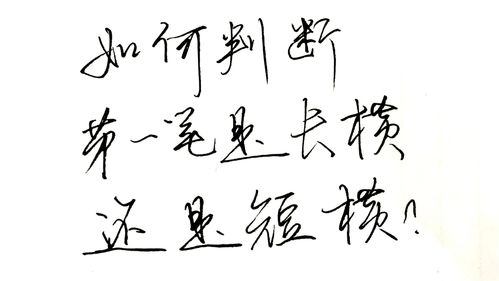 如何判断
第一笔是长横
还是短横？